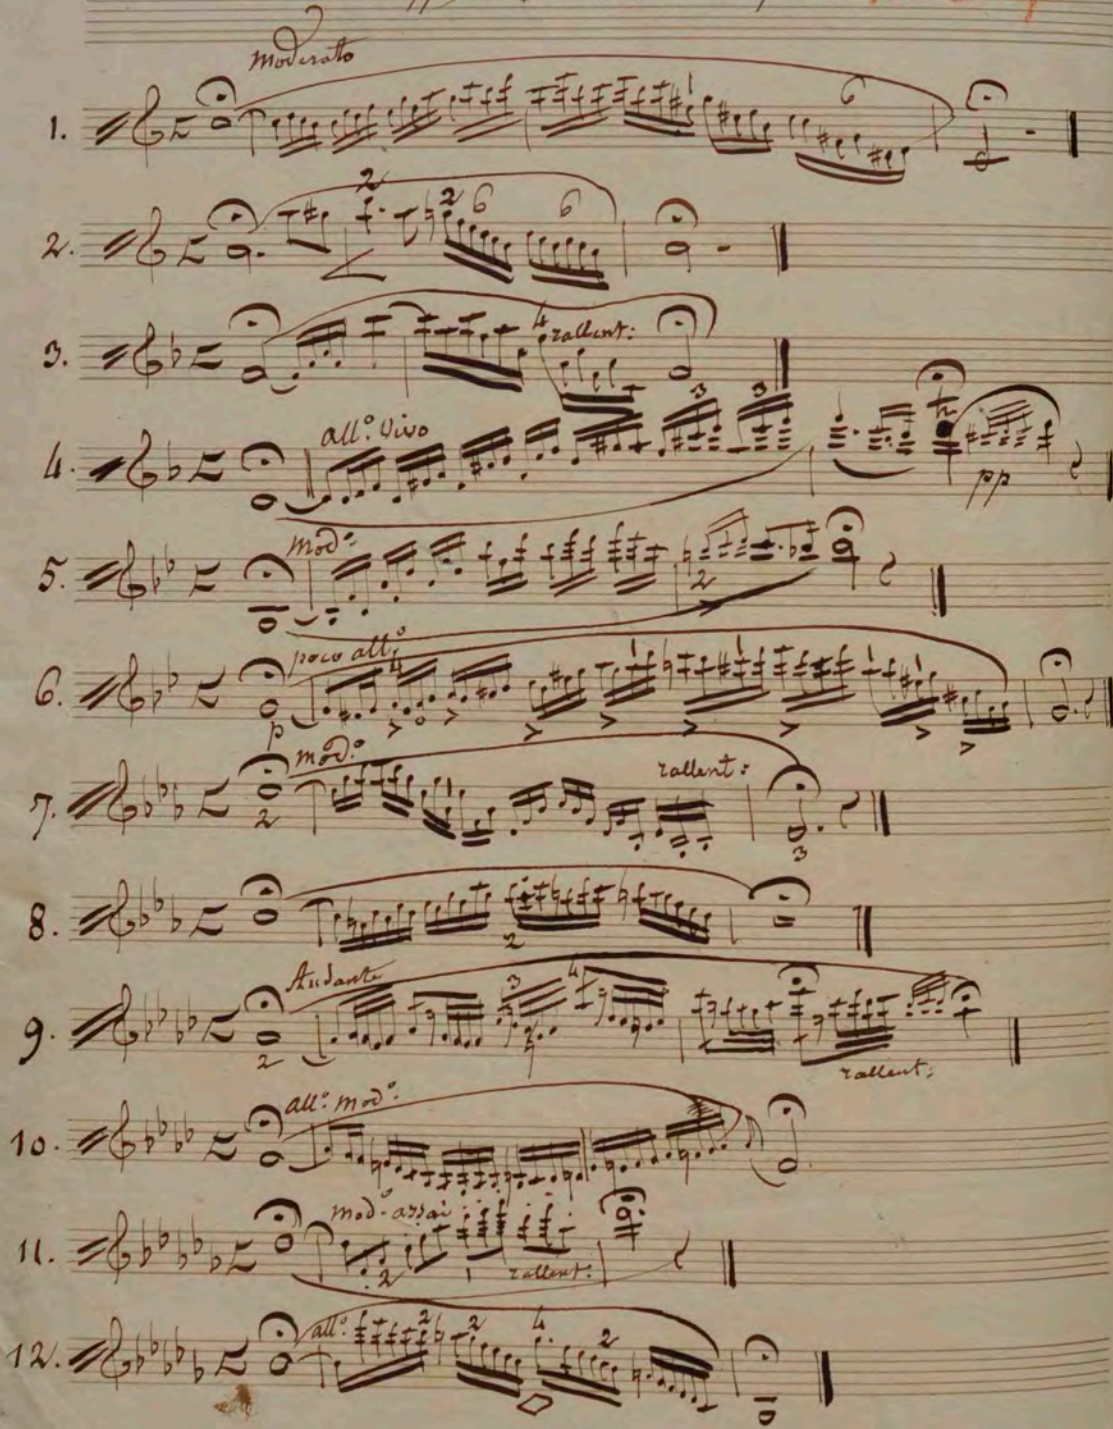 moderato
1.
6
2.
2
2
6
6
3.
4
rallent:
4.
all.º vivo
3
3
pp
5.
mod.º
2
6.
poco all.º
4
p
7.
mod.º
2
rallent:
3
8.
2
9.
Andante
2
3
4
rallent:
10.
all.º mod.º
11.
mod.º assai
2
1
rallent:
12.
all.º
2
2
4
2